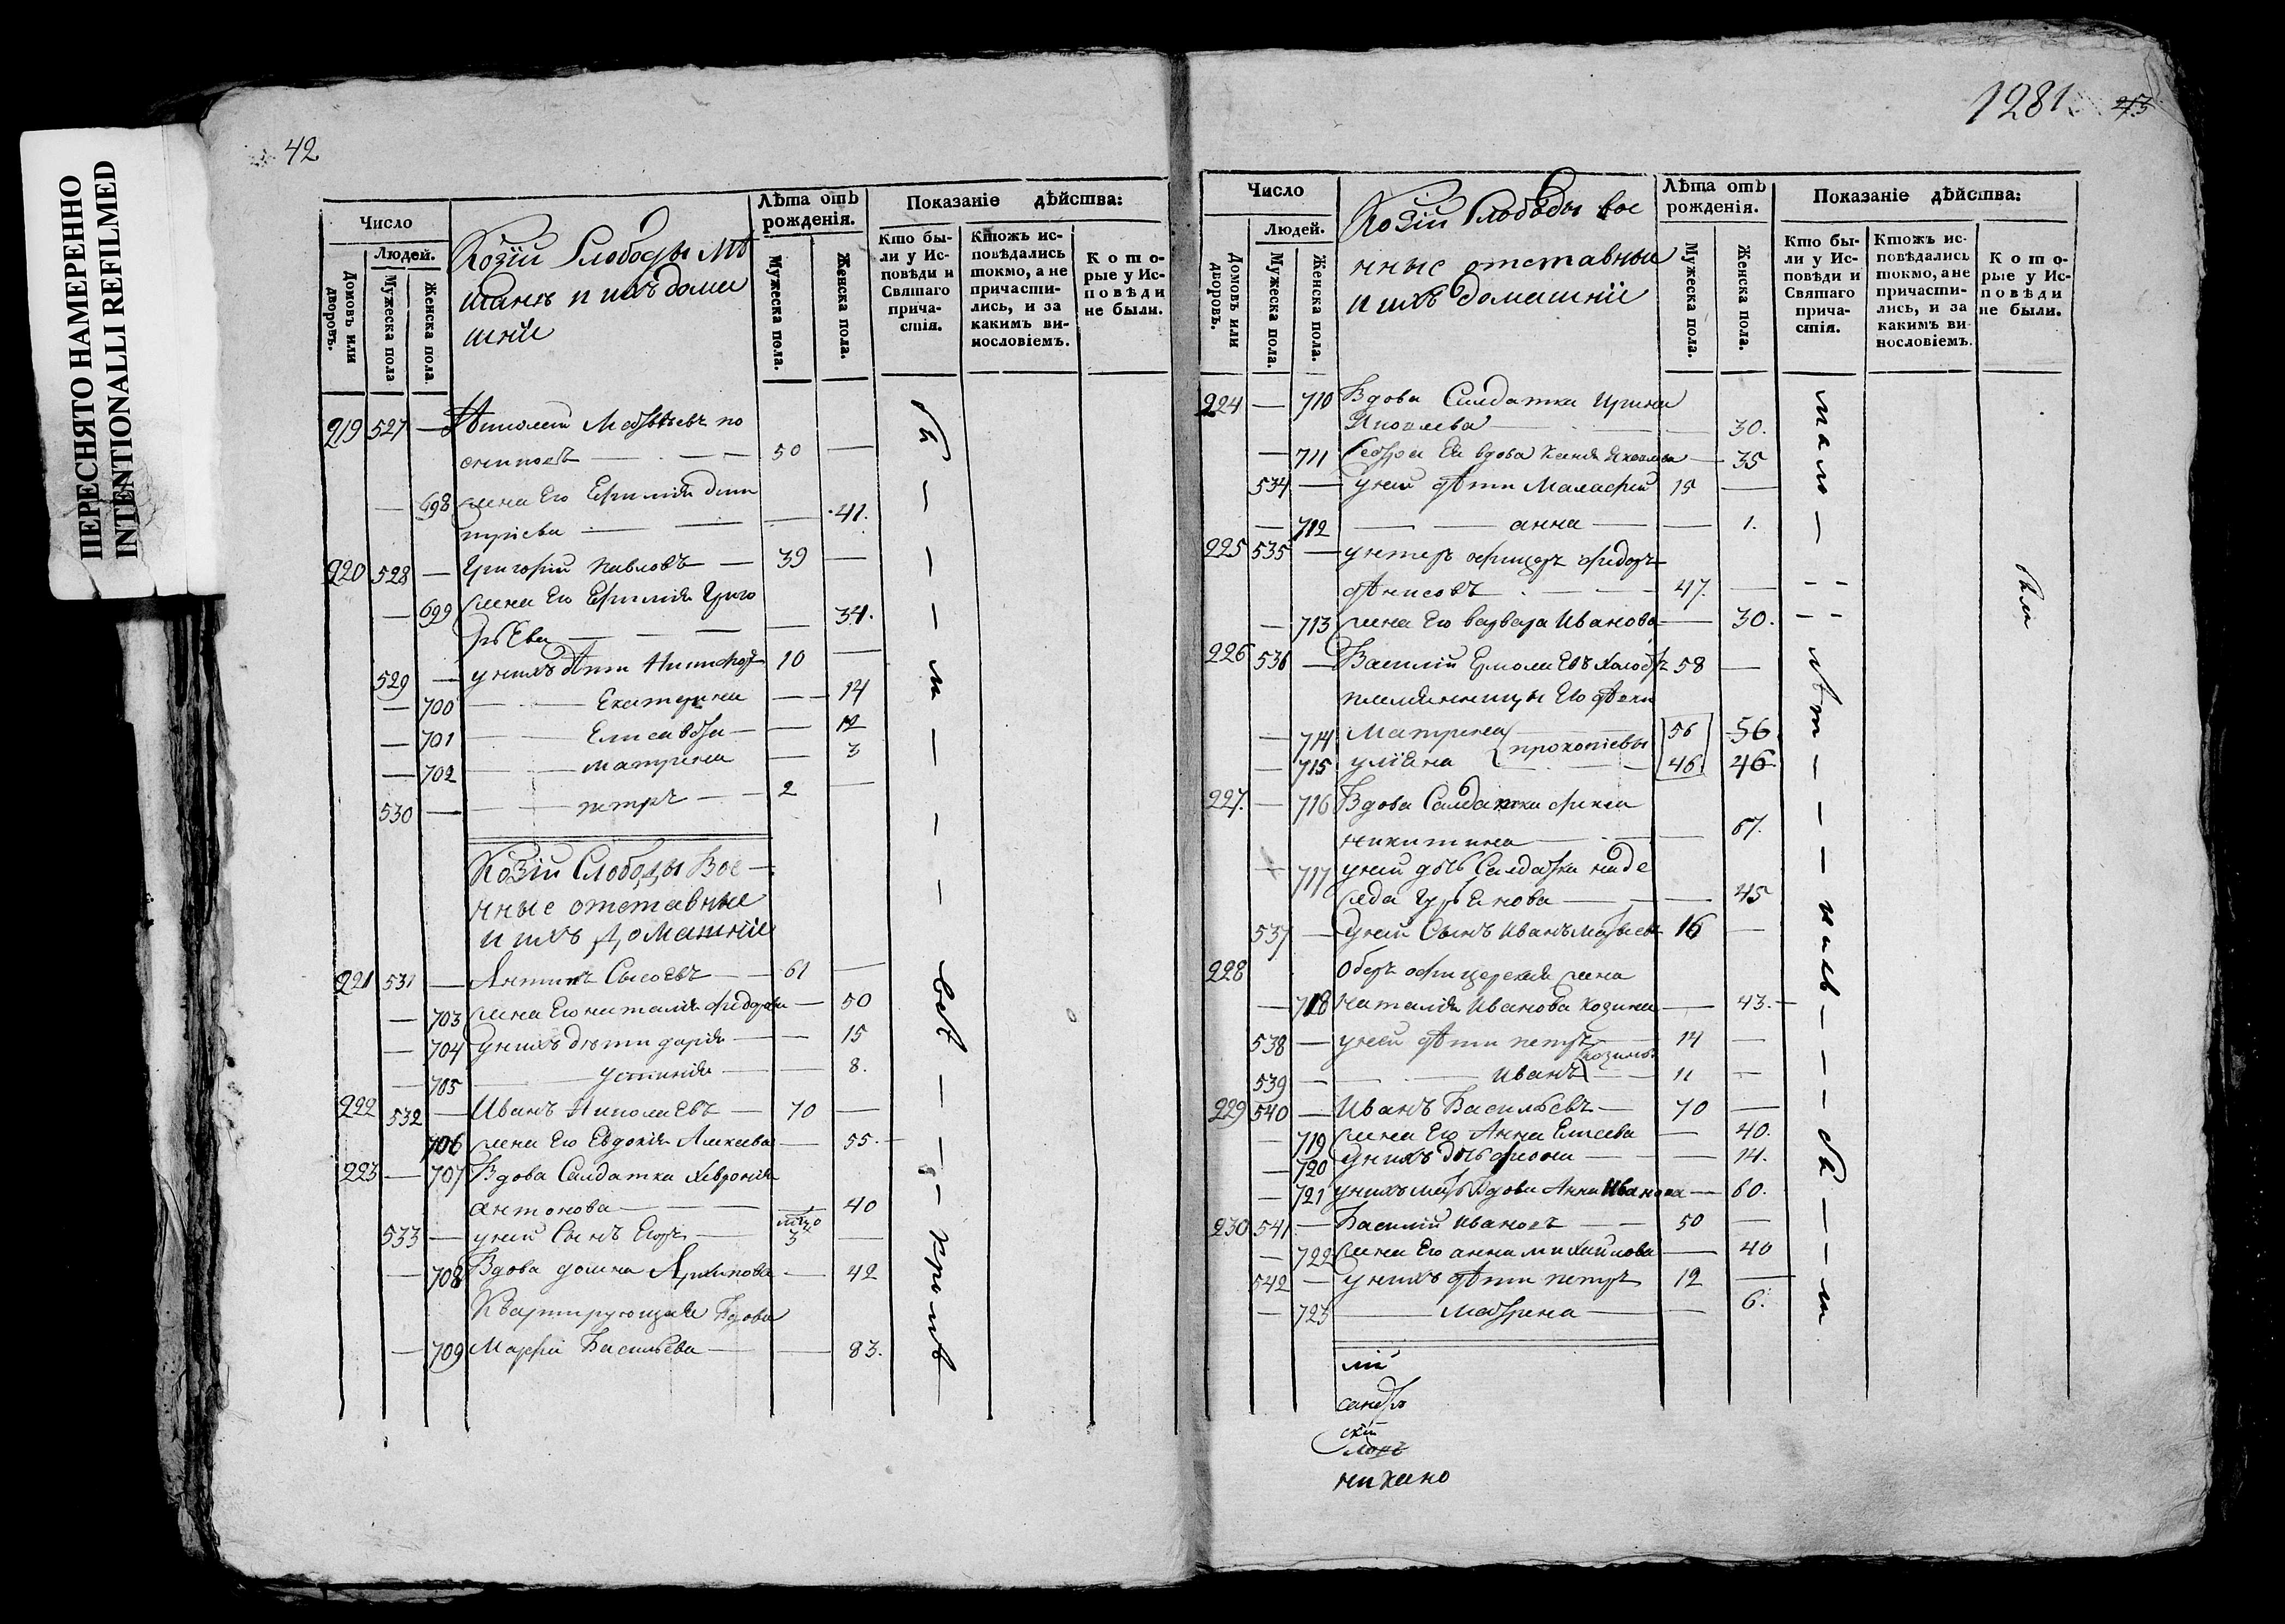 ПЕРЕСНЯТО НАМЕРЕННО
INTENTIONALLI REFILMED
42
Число
Людей.
Домовъ или дворовъ.
Мужеска пола
Женска пола.
Козій Слободы мѣ
щанъ и ихъ дома
шніи
Лѣта отъ рожденія.
Мужеска пола.
Женска пола.
Показаніе дѣйства:
Кто бы-
ли у Ис-
повѣди и
Святаго
прича-
стія.
Ктожъ ис-
повѣдались
токмо, а не
причасти-
лись, и за
какимъ ви-
нословіемъ.
К о т о-
рые у Ис-
п о в ѣ д и
не были.
219 527 —
— 50 —
— 698 жена Его Ефимія дми
тріева — 41.
220 528 — Григорій Павловъ — 39 —
— 699 жена Его Ефимія Григо
рьева — 34.
529 — у нихъ дѣти 10 —
— 700 — Екатерина — 14
— 701 — Елисавета — 12
— 702 — матрена — 3
530 — петръ — 2 —
Козій Слободы Вое
нные отставные
и ихъ домашніи
221 531 — Антипъ Сысоевъ — 61 —
— 703 жена Его наталія Федорова — 50
— 704 у нихъ дѣти дарія — 15
— 705 — устинія — 8.
222 532 — Иванъ Николаевъ — 70 —
706 жена Его Евдокія Алексеева — 55.
223 — 707 Вдова Салдатка Хеврония
антонова — 40
533 — у ней Сынъ Егоръ — 3 —
— 708 Вдова домна Архипова — 42
Квартирующая Вдова
— 709 Марфа Васильева — 83.
1281
213
Число
Людей.
Домовъ или дворовъ.
Мужеска пола.
Женска пола.
Козій Слободы вое
нные отставныи
и ихъ домашніи
Лѣта отъ рожденія.
Мужеска пола.
Женска пола.
Показаніе дѣйства:
Кто бы-
ли у Ис-
повѣди и
Святаго
прича-
стія.
Ктожъ ис-
повѣдались
токмо, а не
причасти-
лись, и за
какимъ ви-
нословіемъ.
К о т о-
рые у Ис-
п о в ѣ д и
не были.
224 — 710 Вдова Салдатка Ирина
Яковлева — 30.
— 711 Сестра Ея вдова Яковлева — 35
534 — у ней дѣти Малафей 15 —
— 712 — анна — 1.
225 535 — унтеръ офицеръ Федоръ
дѣнисовъ — 47. —
— 713 жена Его варвара Иванова — 30.
226 536 — Василій Ермолаевъ 58 —
племянницы Его
— 714 Матрена 56 56
прокопіевы
— 715 уліяна 46 46
227. — 716 Вдова Салдатка
никитина — 67.
— 717 у ней дочь Салдатка наде
жда Гурьянова — 45
537 — у ней Сынъ Иванъ 16 —
228 Оберъ офицерская жена
— 718 наталія Иванова козина — 43.
538 — у ней дѣти петръ 14 —
козины
539 — Иванъ — 11 —
229 540 — Иванъ Васильевъ — 70 —
— 719 жена Его Анна Елисеева — 40.
— 720 у нихъ дочь — 14.
— 721 у нихъ мать Вдова Анна Иванова — 60.
230 541 — Василій Ивановъ — 50 —
— 722 жена Его анна михайлова — 40
542 — у нихъ дѣти петръ 12 —
— 723 — Матрена — 6.